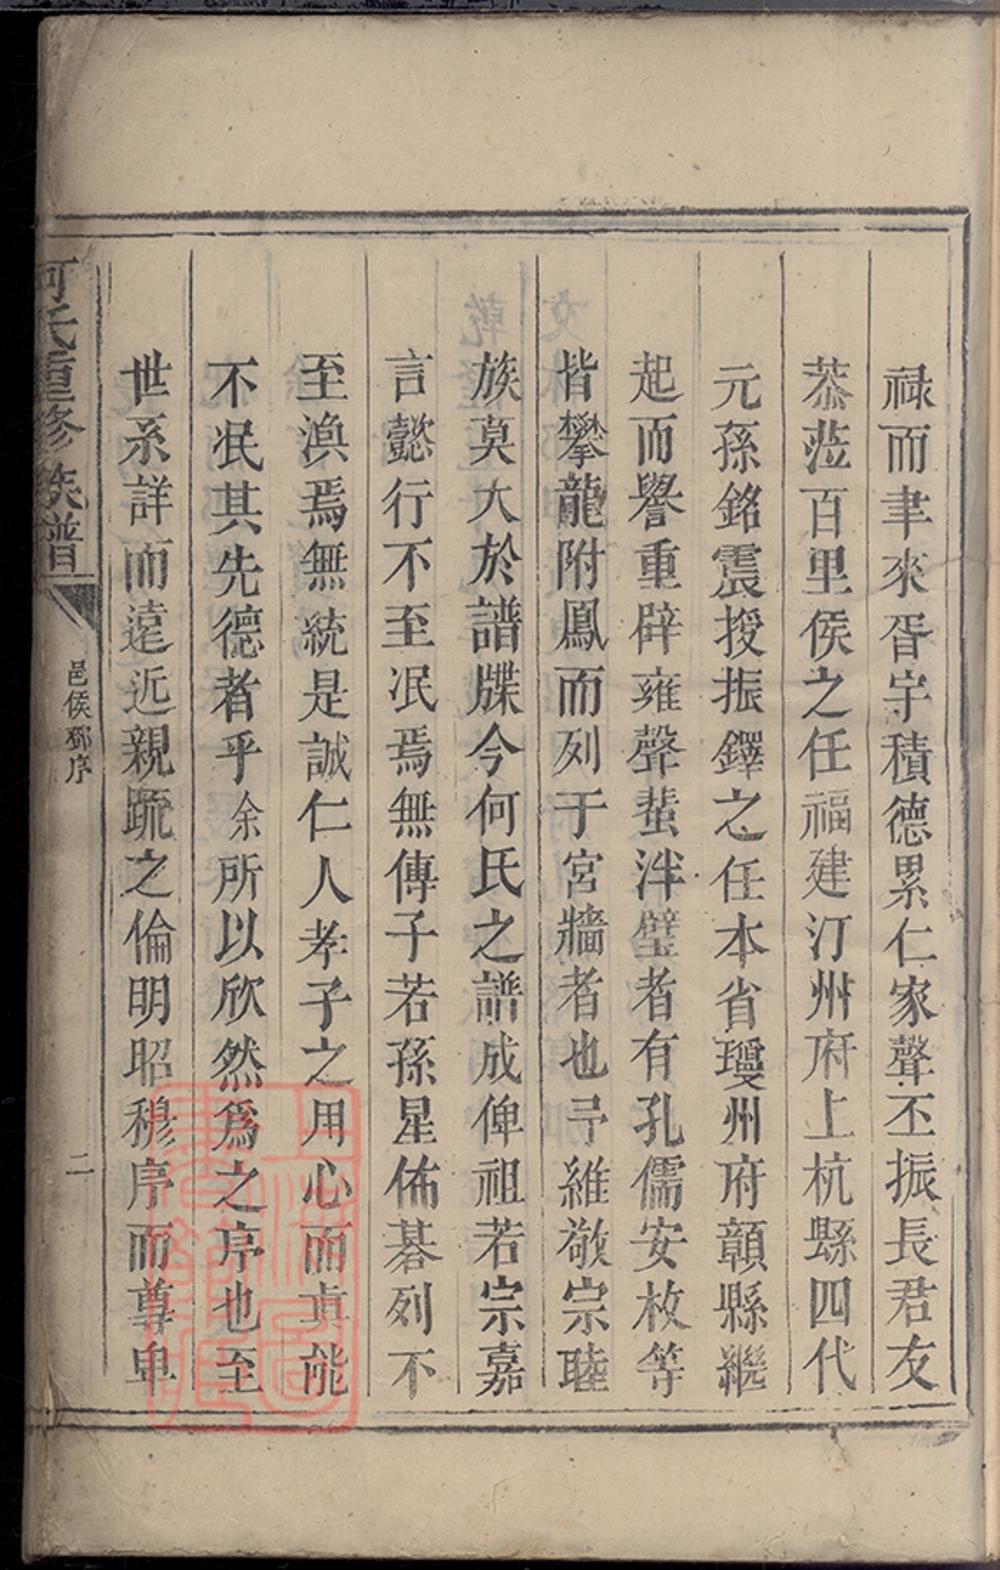 祿而聿來胥宇積德累仁家聲丕振長君友
恭蒞百里侯之任福建汀州府上杭縣四代
元孫銘震授振鐸之任本省瓊州府
起而譽重辟雍聲蜚泮璧者有孔儒安枚等
皆攀龍附鳳而列于宮牆者也予維敬宗睦
族莫大於譜牒今何氏之譜成俾祖若宗嘉
言懿行不至泯焉無傳子若孫星佈碁列不
至渙焉無統是誠仁人孝子之用心而真能
不泯其先德者乎余所以欣然為之序也至
世系詳而遠近親疏之倫明昭穆序而尊卑
何氏重修族譜
邑侯鄧序
二